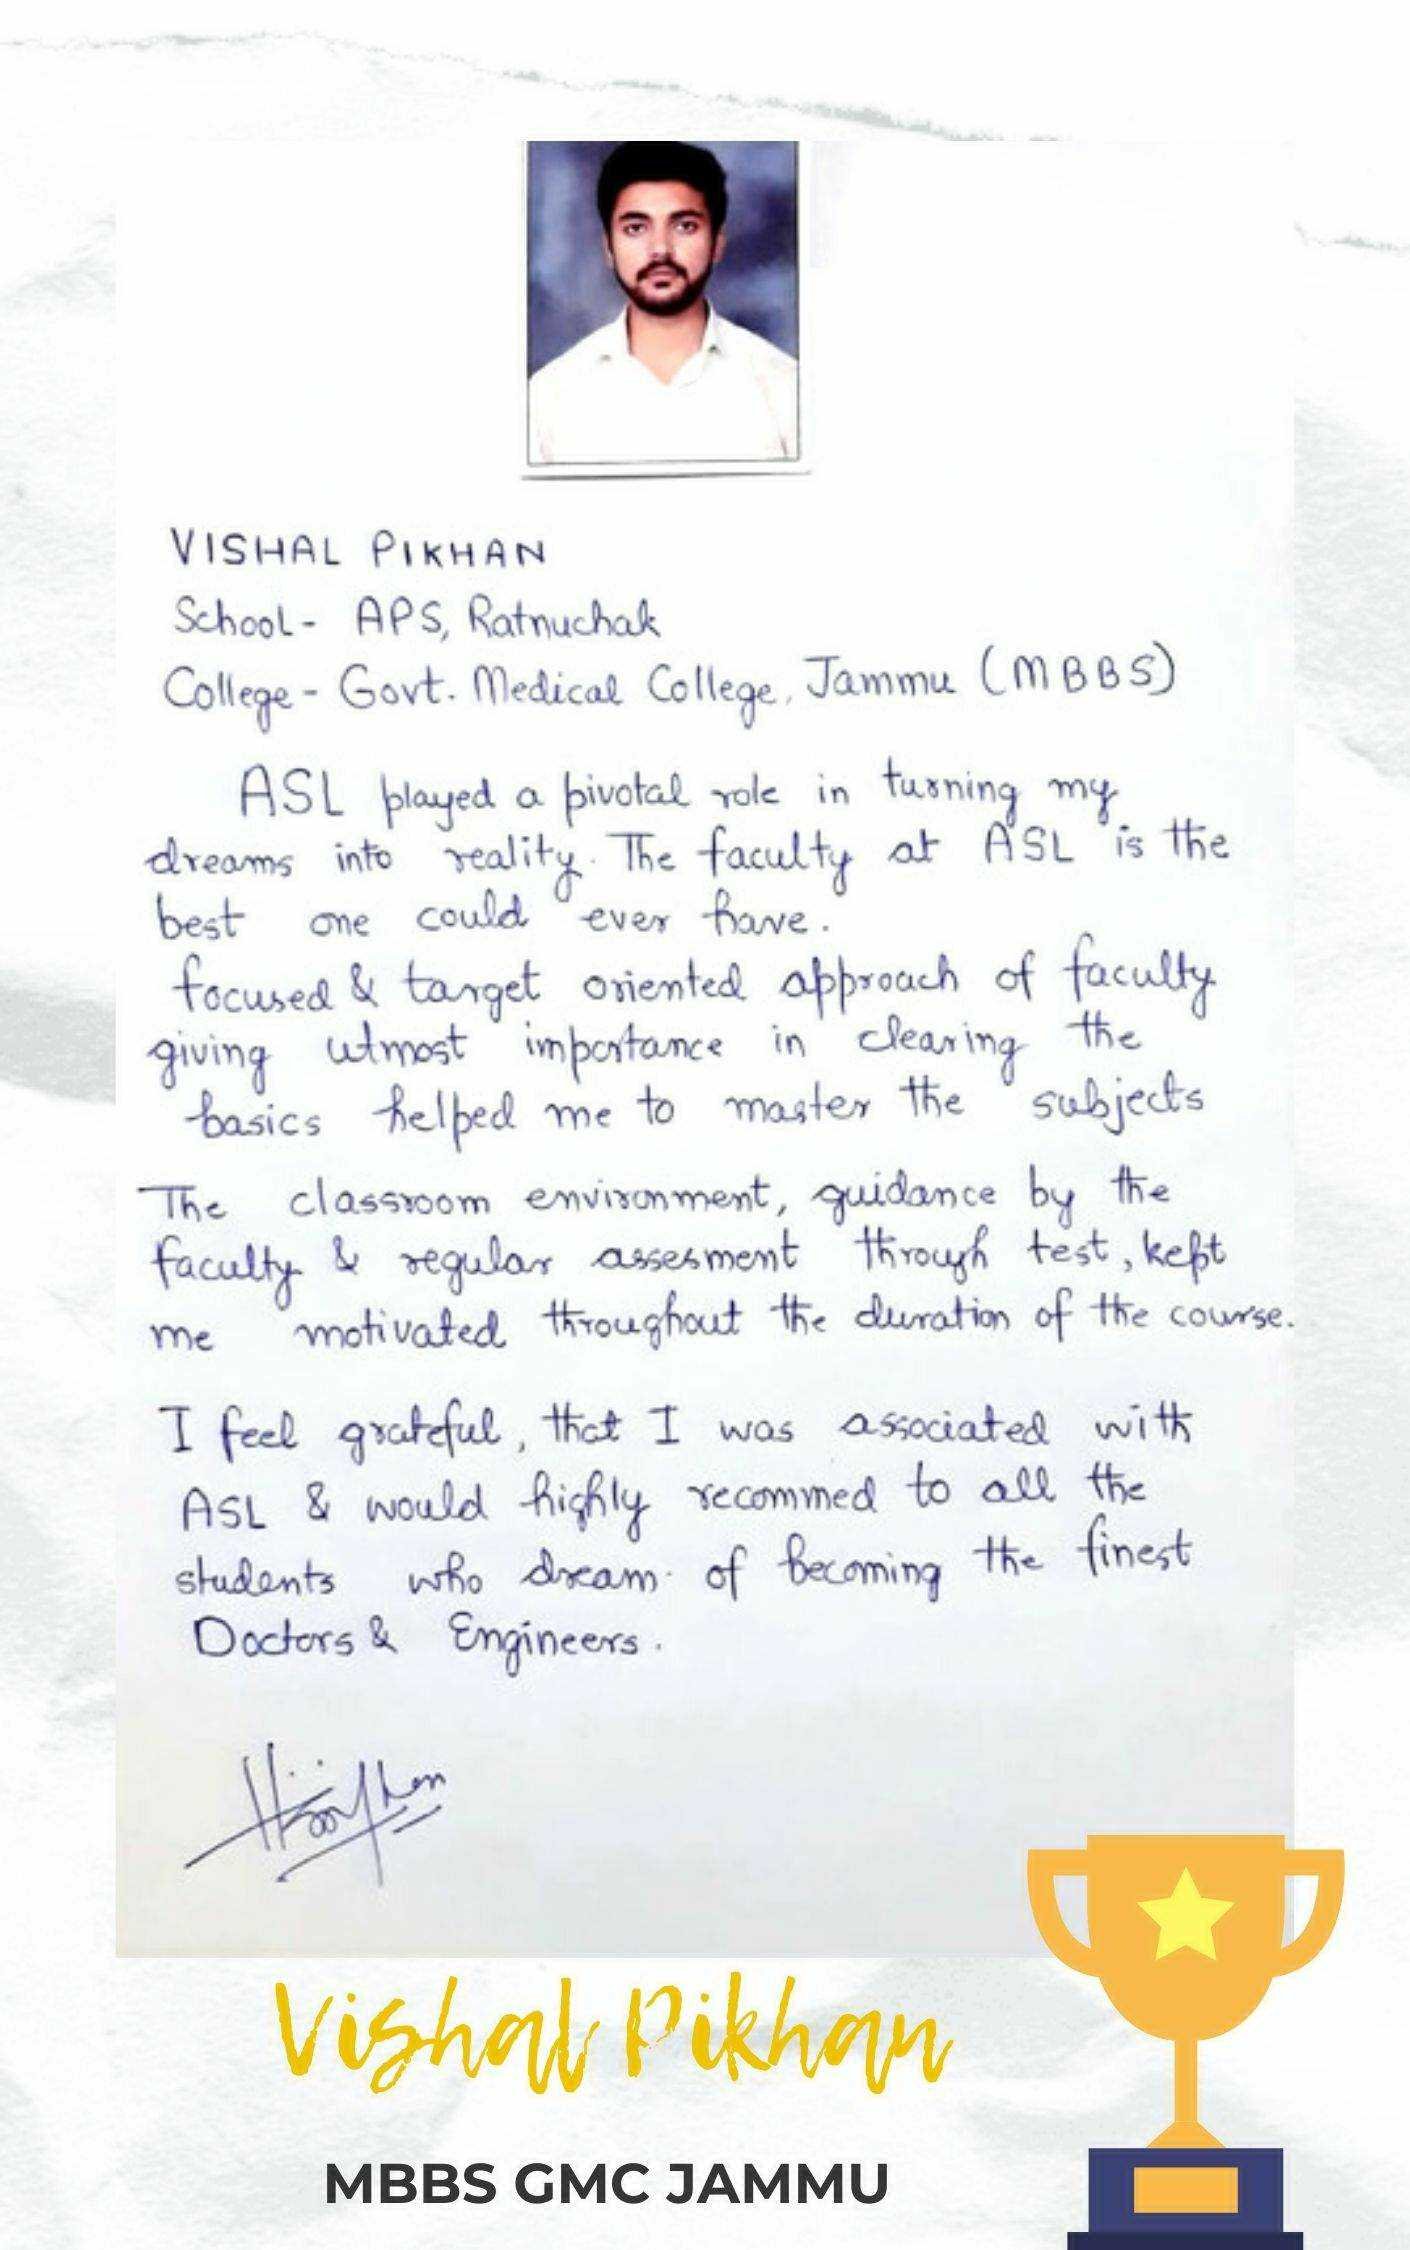 VISHAL PIKHAN
School - APS, Ratnuchak
College - Govt. Medical College, Jammu (MBBS)
ASL played a pivotal role in turning my
dreams into reality. The faculty at ASL is the
best one could ever have.
focused & target oriented approach of faculty
giving utmost importance in clearing the
basics helped me to master the subjects
The classroom environment, guidance by the
faculty & regular assesment through test, kept
me motivated throughout the duration of the course.
I feel grateful, that I was associated with
ASL & would highly recommed to all the
students who dream of becoming the finest
Doctors & Engineers.
Vishal Pikhan
MBBS GMC JAMMU